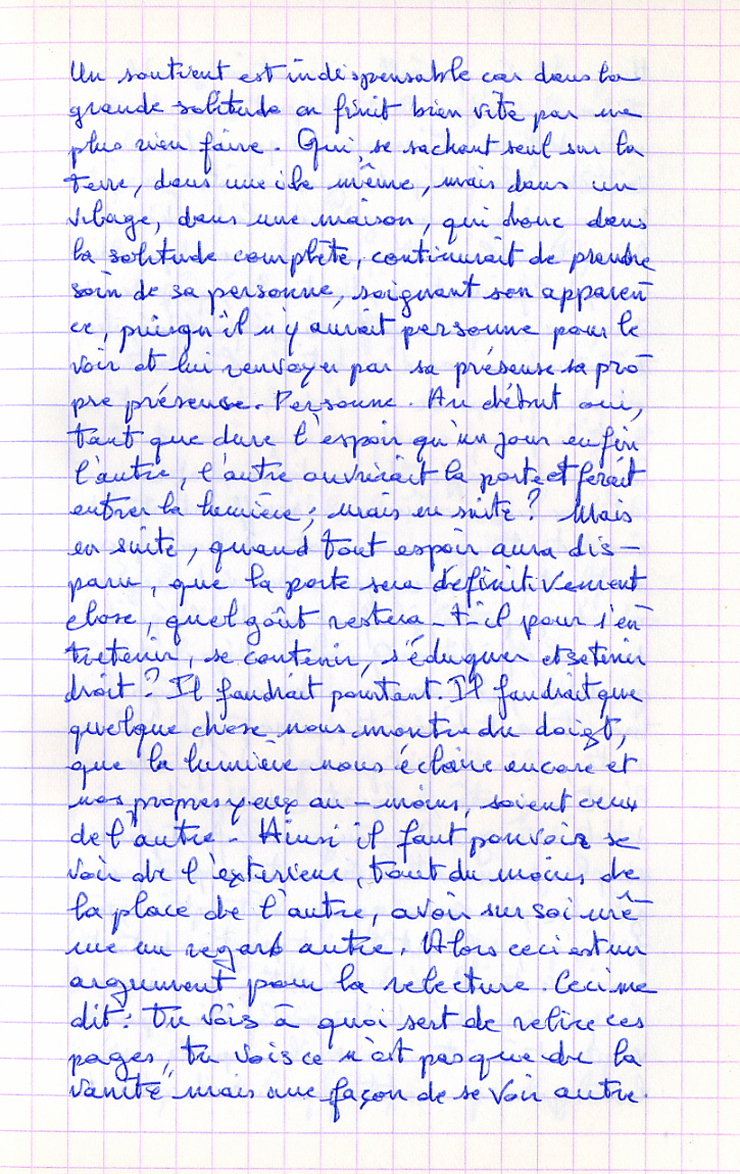 Un soutient est indispensable car dans la
grande solitude on finit bien vite par ne
plus rien faire. Qui, se sachant seul sur la
terre, dans une ile même, mais dans un
village, dans une maison, qui donc dans
la solitude complète, continurait de prendre
soin de sa personne, soignant son apparen
ce, puisqu'il n'y aurait personne pour le
voir et lui renvoyer par sa présense sa pro
pre présense. Personne. Au début oui,
tant que dure l'espoir qu'un jour enfin
l'autre, l'autre ouvrirait la porte et ferait
entrer la lumière; mais en suite? Mais
en suite, quand tout espoir aura dis-
paru, que la porte sera définitivement
close, quel goût restera-t-il pour s'en
tretenir, se contenir, s'éduquer et se tenir
droit? Il faudrait pourtant. Il faudrait que
quelque chose nous montre du doigt,
que la lumière nous éclaire encore et
nos propres yeux au-moins, soient ceux
de l'autre. Ainsi il faut pouvoir se
voir de l'exterieur, tout du moins de
la place de l'autre, avoir sur soi mê
me un regard autre. Alors ceci est un
argument pour la relecture. Ceci me
dit: tu vois à quoi sert de relire ces
pages, tu vois ce n'est pas que de la
vanité mais une façon de se voir autre.